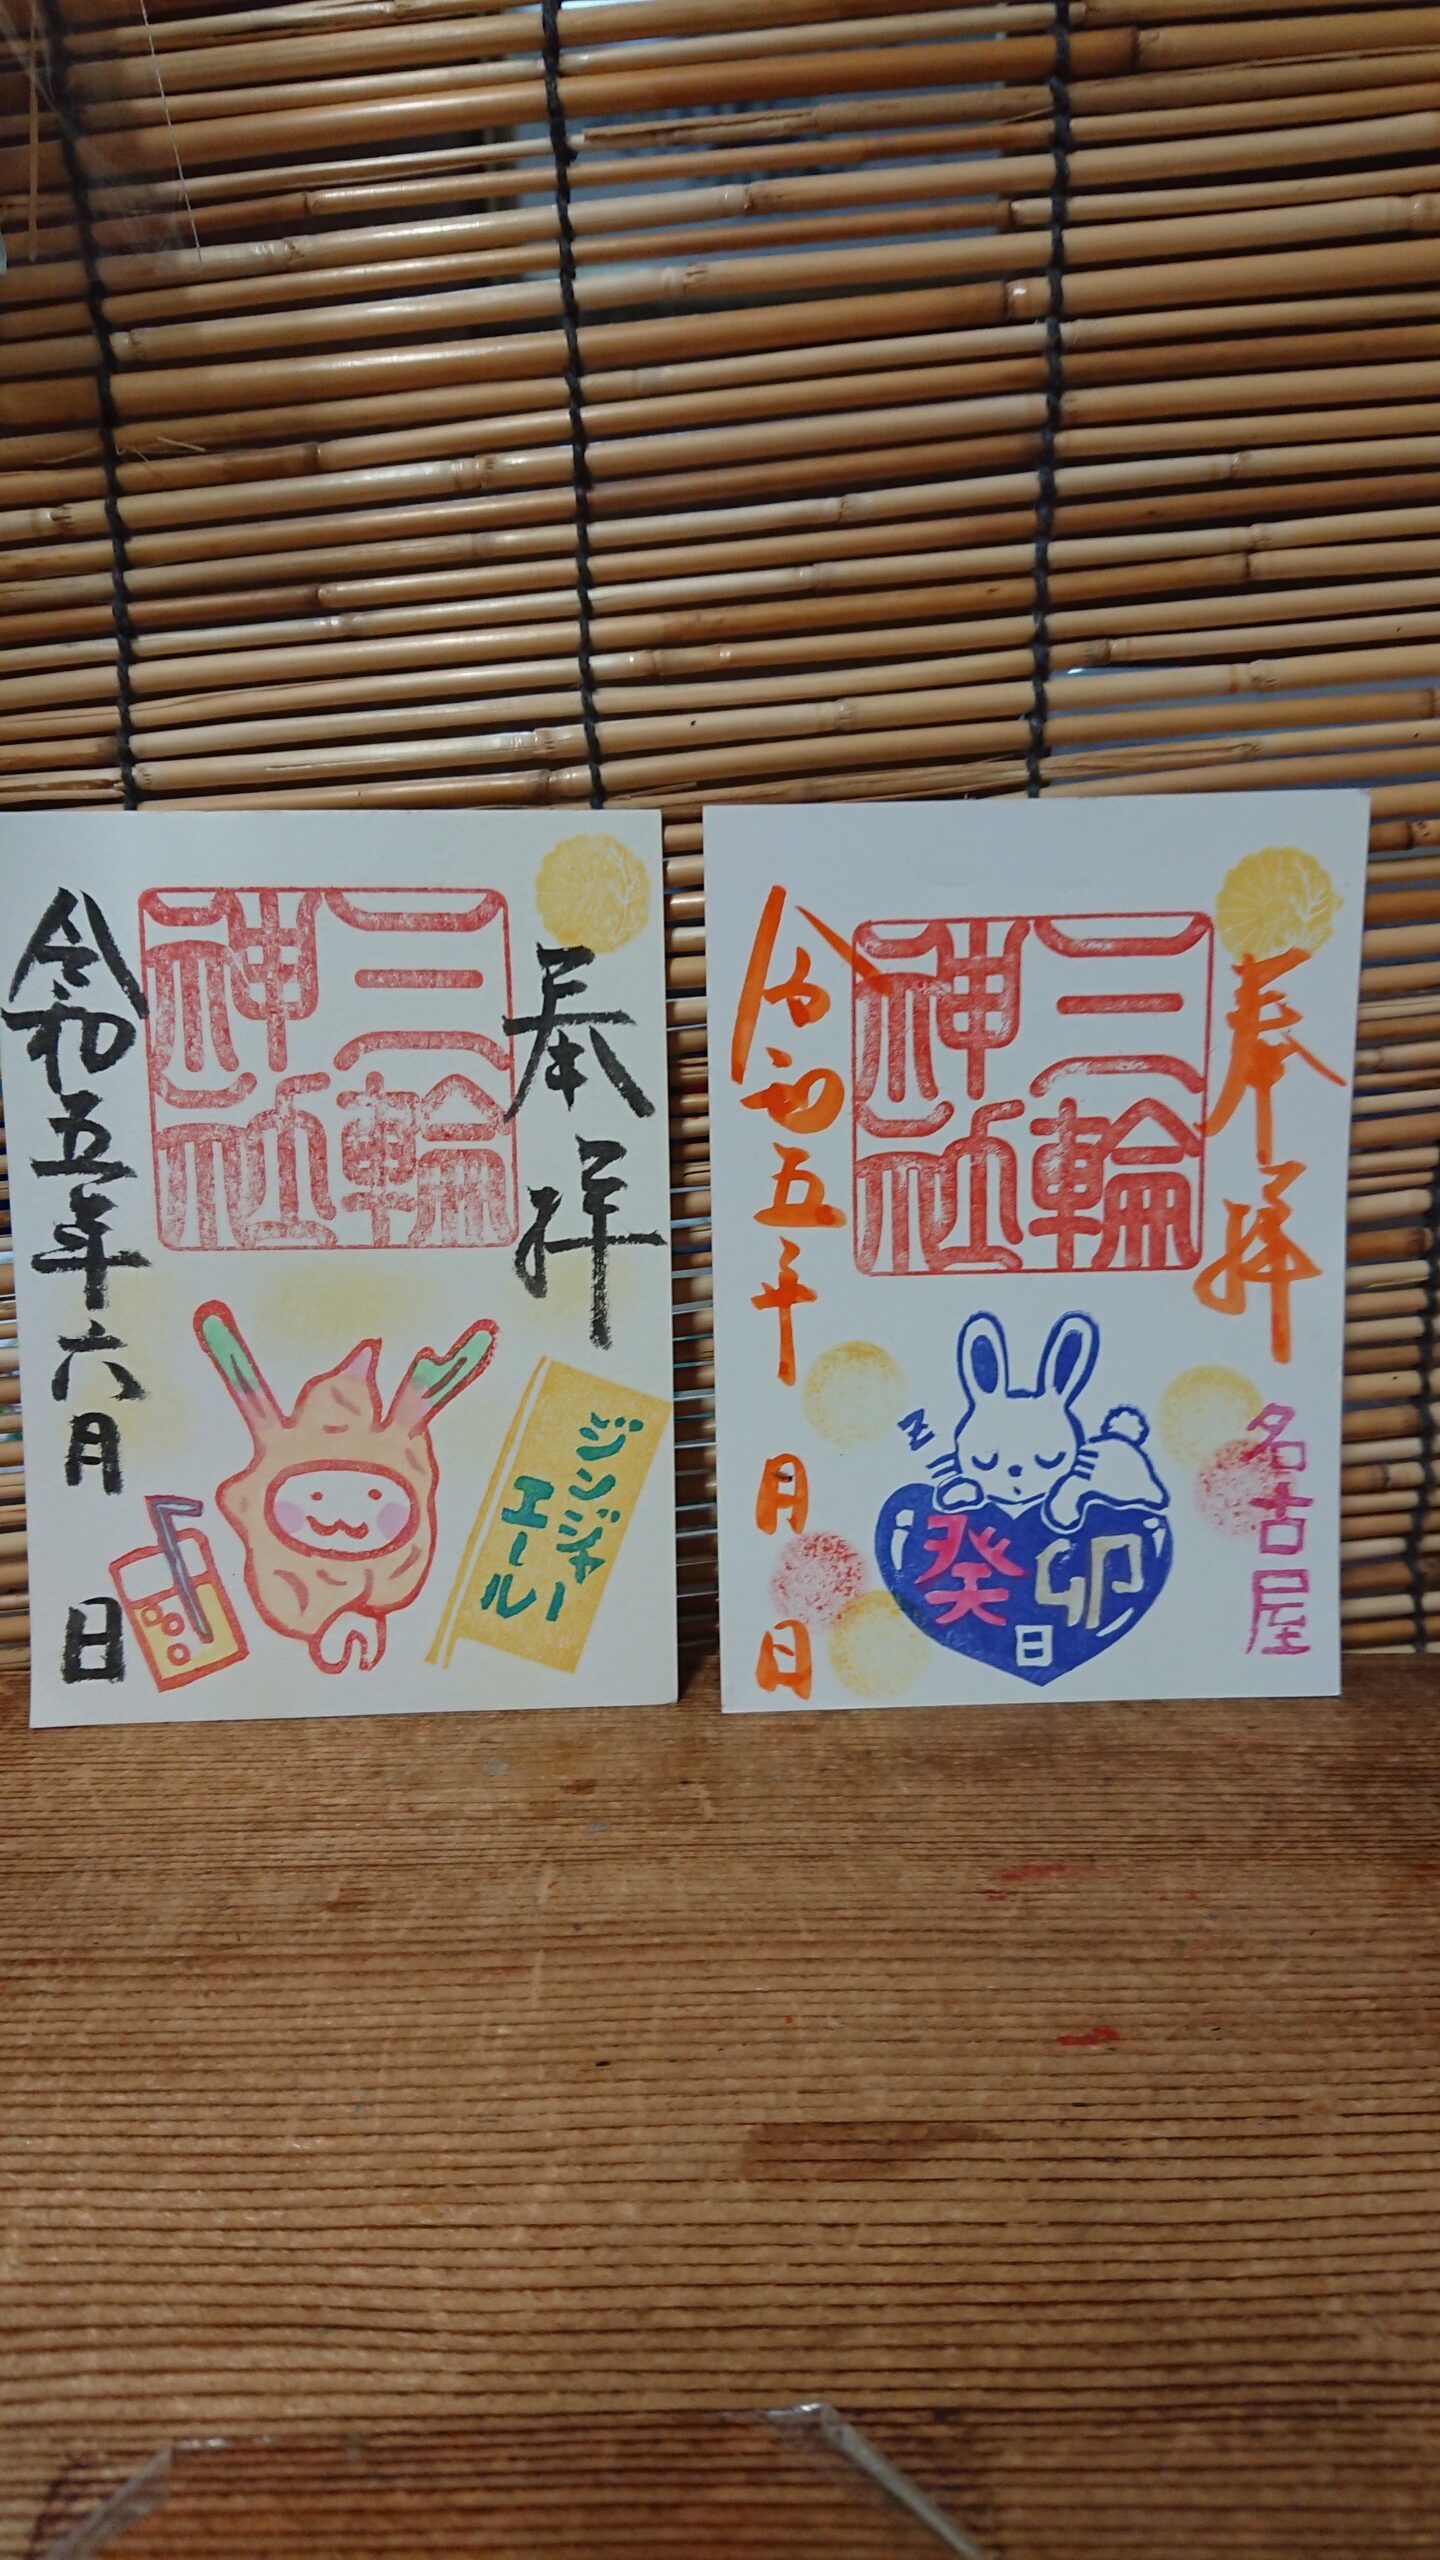 奉拝
三輪
神社
令和五年六月 日
ジンジャー
エール
奉拝
三輪
神社
令和五年 月 日
名古屋
Z
癸卯
日